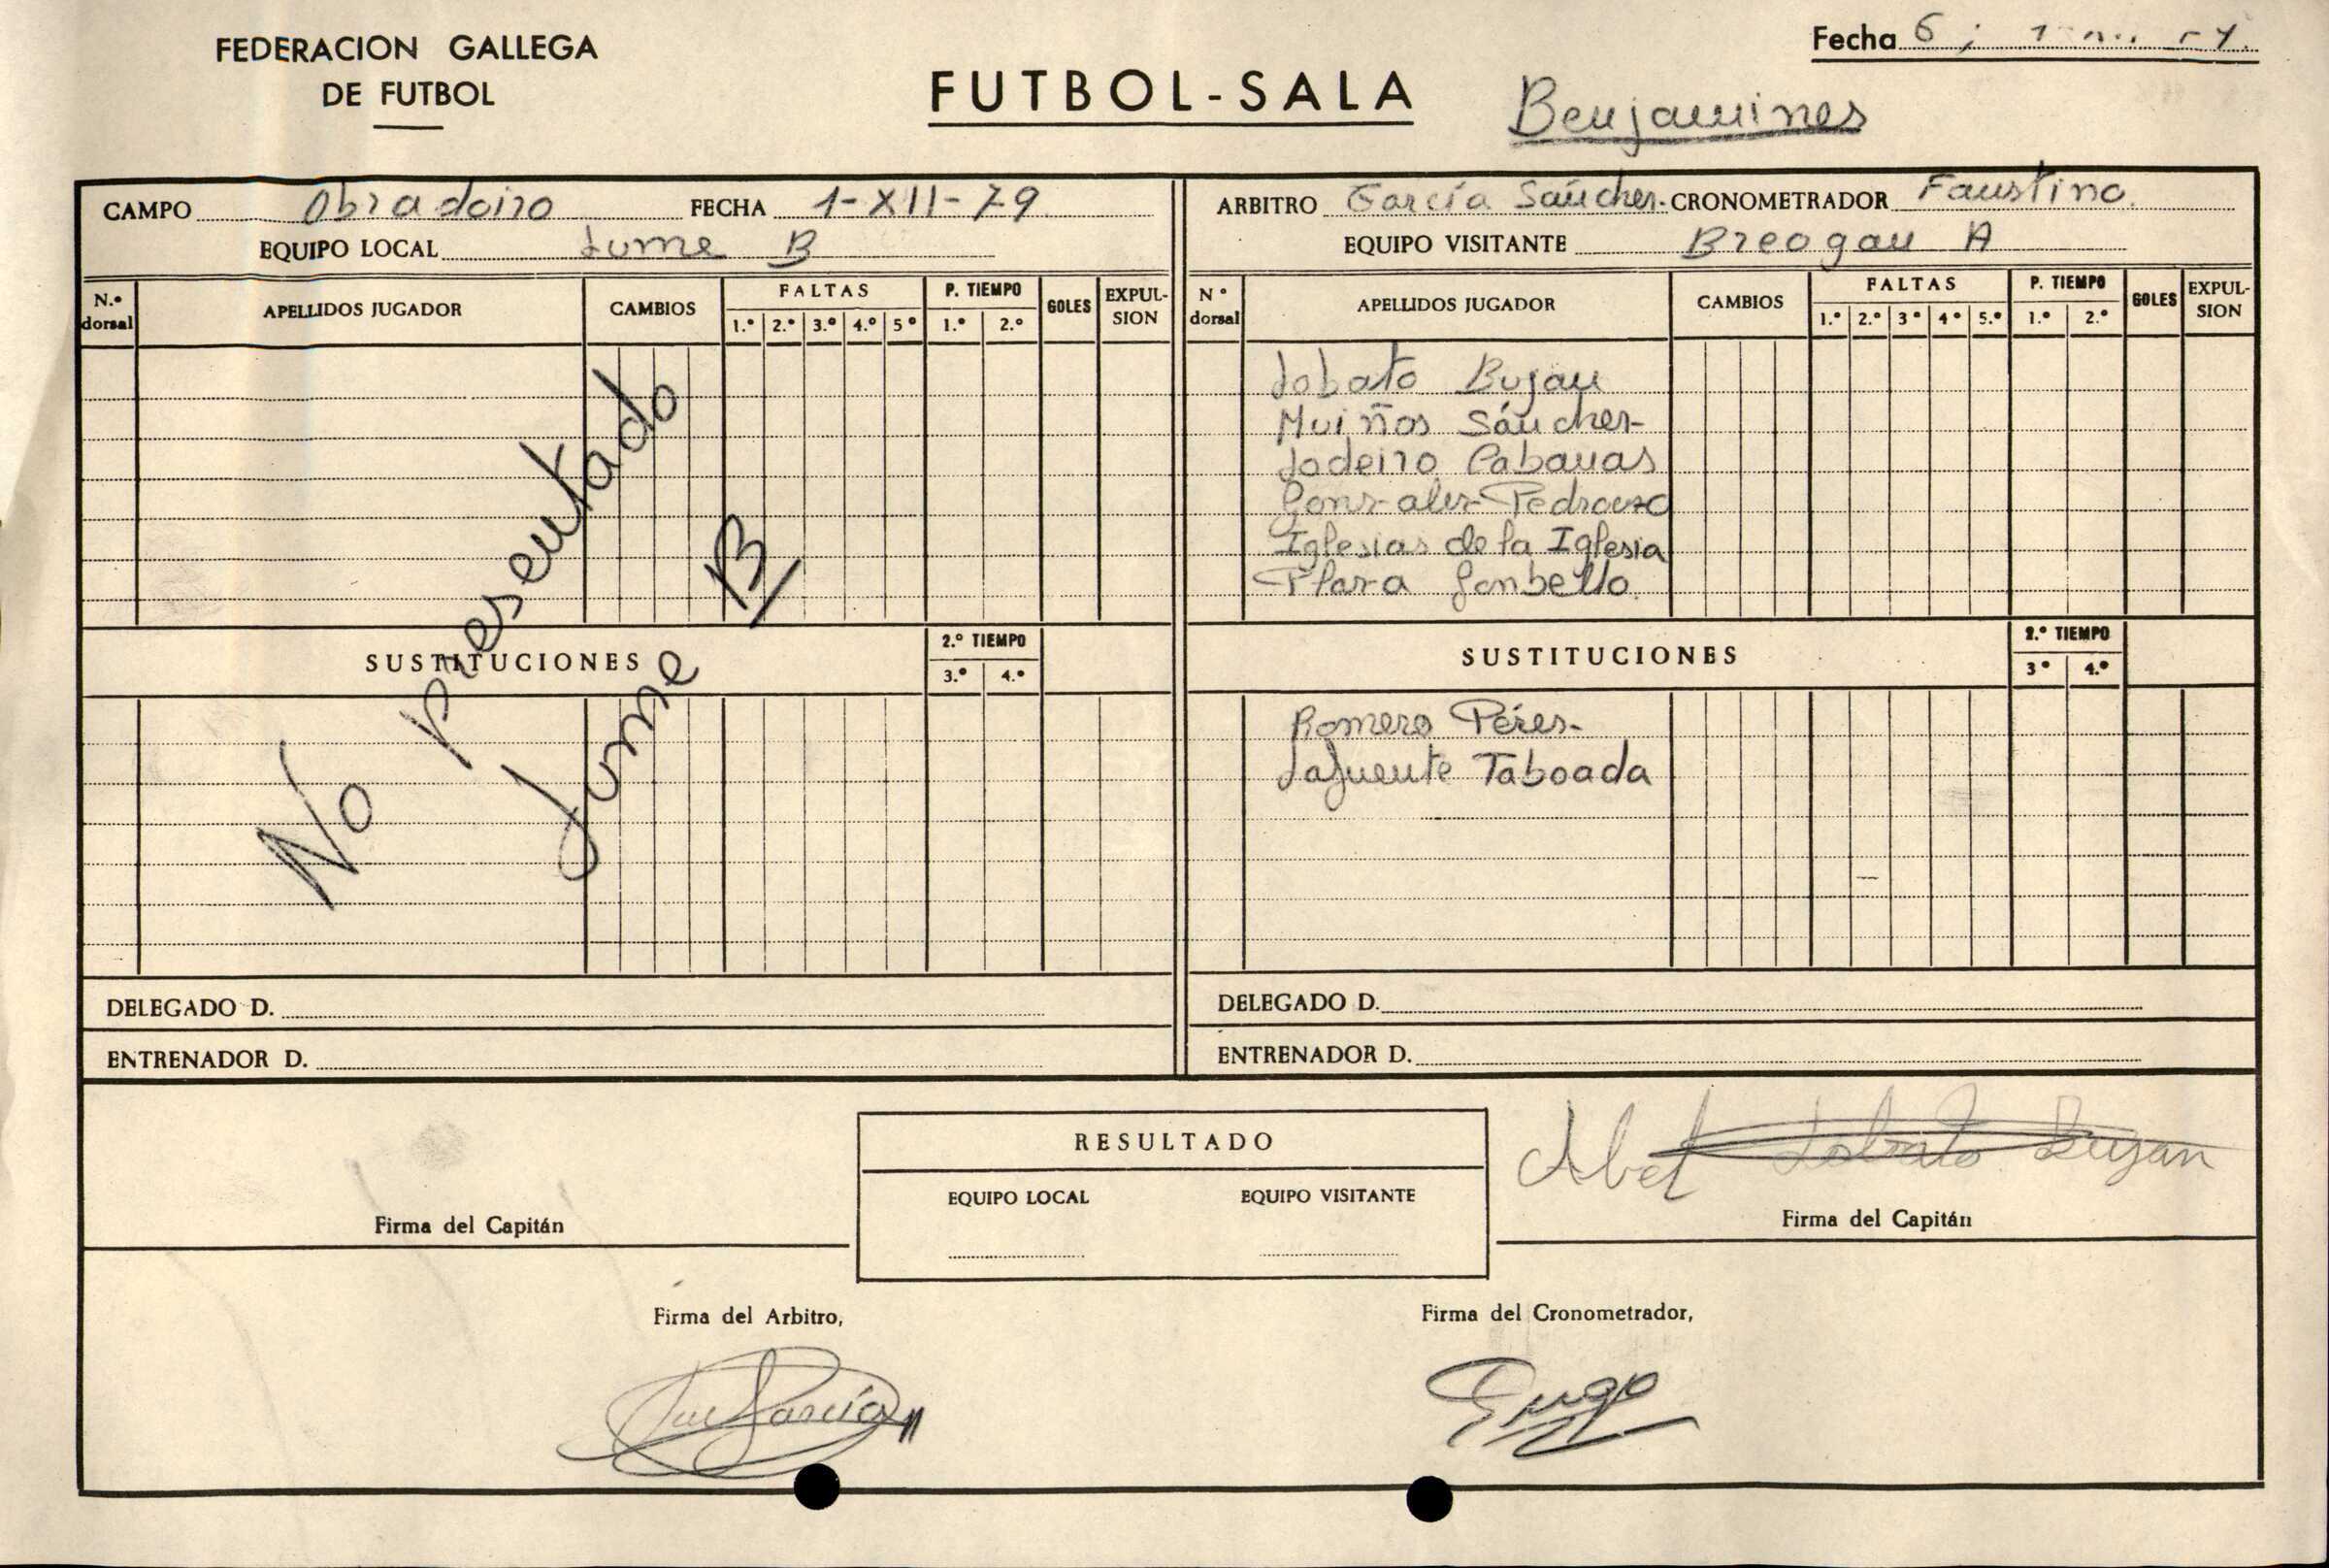 FEDERACION GALLEGA
DE FUTBOL
FUTBOL-SALA
Fecha 6
Benjamines
CAMPO Obradoiro FECHA 1-XII-79
EQUIPO LOCAL Lume B
ARBITRO García Sánchez CRONOMETRADOR Faustino.
EQUIPO VISITANTE Breogan A
N.º dorsal APELLIDOS JUGADOR CAMBIOS FALTAS 1.º 2.º 3.º 4.º 5º P. TIEMPO 1.º 2.º GOLES EXPUL-SION
Nº dorsal APELLIDOS JUGADOR CAMBIOS FALTAS 1.º 2.º 3º 4º 5.º P. TIEMPO 1.º 2.º GOLES EXPUL-SION
No presentado
Lume B
Lobato Bujan
Muiños Sánchez
Lodeiro Cabanas
Gonzalez Pedrouzo
Iglesias de la Iglesia
Plaza Gonbello.
SUSTITUCIONES 2.º TIEMPO 3.º 4.º
SUSTITUCIONES 2.º TIEMPO 3º 4.º
Romero Pérez
Lafuente Taboada
DELEGADO D.
DELEGADO D.
ENTRENADOR D.
ENTRENADOR D.
RESULTADO
EQUIPO LOCAL EQUIPO VISITANTE
Abel Lobato Bujan
Firma del Capitán
Firma del Capitán
Firma del Arbitro,
Firma del Cronometrador,
García